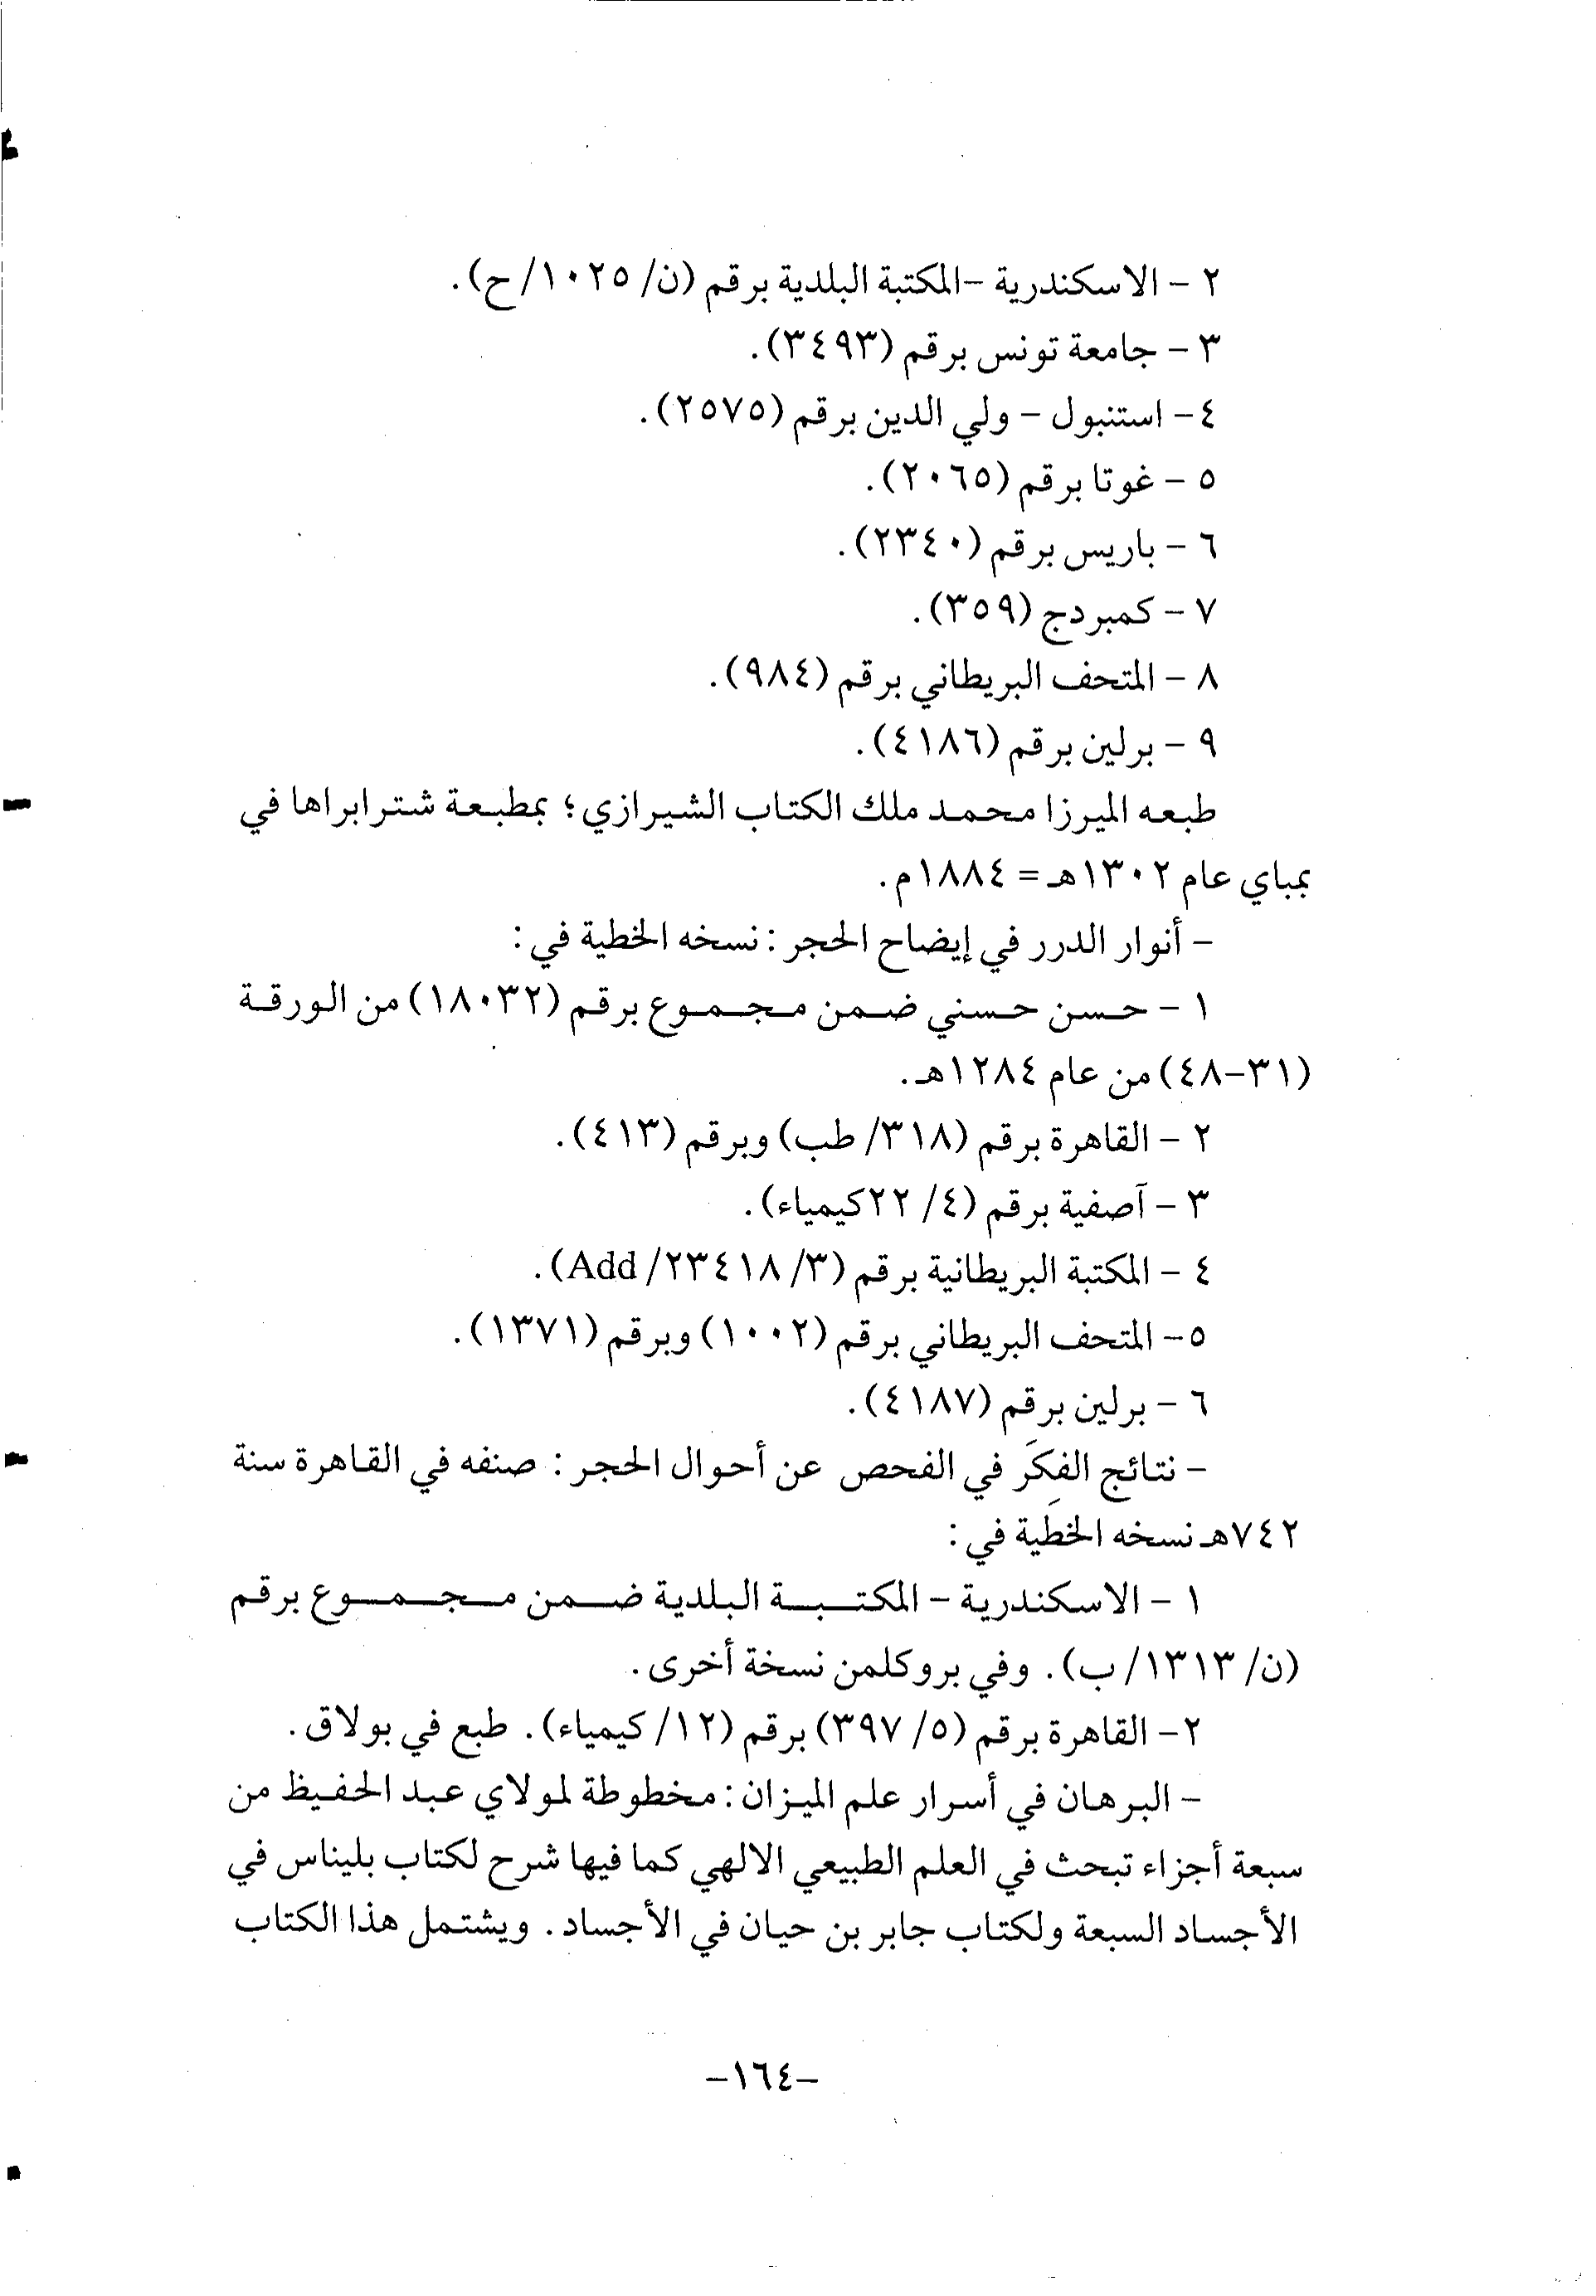 ٢ - الاسكندرية -المكتبة البلدية برقم (ن/ ١٠٢٥/ح).
٣ - جامعة تونس برقم (٣٤٩٣).
٤- استنبول - ولي الدين برقم (٢٥٧٥).
٥ - غوتا برقم (٢٠٦٥).
٦ - باريس برقم (٢٣٤٠).
٧ - كمبردج (٣٥٩).
٨ - المتحف البريطاني برقم (٩٨٤).
٩ - برلين برقم (٤١٨٦).
طبعه الميرزا محمد ملك الكتاب الشيرازي؛ بمطبعة شترابراها في
بمباي عام ١٣٠٢هـ = ١٨٨٤م.
- أنوار الدرر في إيضاح الحجر: نسخه الخطية في:
١ - حسن حسني ضمن مجموع برقم (١٨٠٣٢) من الورقة
(٣١-٤٨) من عام ١٢٨٤هـ.
٢ - القاهرة برقم (٣١٨/ طب) وبرقم (٤١٣).
٣ - آصفية برقم (٤/ ٢٢كيمياء).
٤ - المكتبة البريطانية برقم (٣/ ٢٣٤١٨/ Add).
٥- المتحف البريطاني برقم (١٠٠٢) وبرقم (١٣٧١).
٦ - برلين برقم (٤١٨٧).
- نتائج الفِكَر في الفحص عن أحوال الحجر: صنفه في القاهرة سنة
٧٤٢هـ نسخه الخطية في:
١ - الاسكندرية - المكتبة البلدية ضمن مجموع برقم
(ن/ ١٣١٣/ ب). وفي بروكلمن نسخة أخرى.
٢- القاهرة برقم (٥/ ٣٩٧) برقم (١٢/ كيمياء). طبع في بولاق.
- البرهان في أسرار علم الميزان: مخطوطة لمولاي عبد الحفيظ من
سبعة أجزاء تبحث في العلم الطبيعي الالهي كما فيها شرح لكتاب بليناس في
الأجساد السبعة ولكتاب جابر بن حيان في الأجساد. ويشتمل هذا الكتاب
-١٦٤-